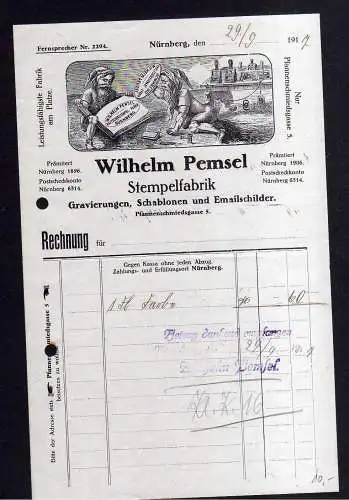 Fernsprecher Nr. 2294.
Nürnberg, den 29/9 1917
Leistungsfähigste Fabrik
am Platze.
Nur
Pfannenschmiedsgasse 5.
WILHELM PEMSEL
NÜRNBERG
Prämiiert
Nürnberg 1896.
Postscheckkonto
Nürnberg 6314.
Prämiiert
Nürnberg 1906.
Postscheckkonto
Nürnberg 6314.
Wilhelm Pemsel
Stempelfabrik
Gravierungen, Schablonen und Emailschilder.
Pfannenschmiedsgasse 5.
Rechnung für
Gegen Kassa ohne jeden Abzug.
Zahlungs- und Erfüllungsort Nürnberg.
1 Farbe 60
Betrag dankend empfangen
29/9
Wilhelm Pemsel.
Bitte der Adresse stets Pfannenschmiedsgasse 5
beisetzen zu wollen.
10,-